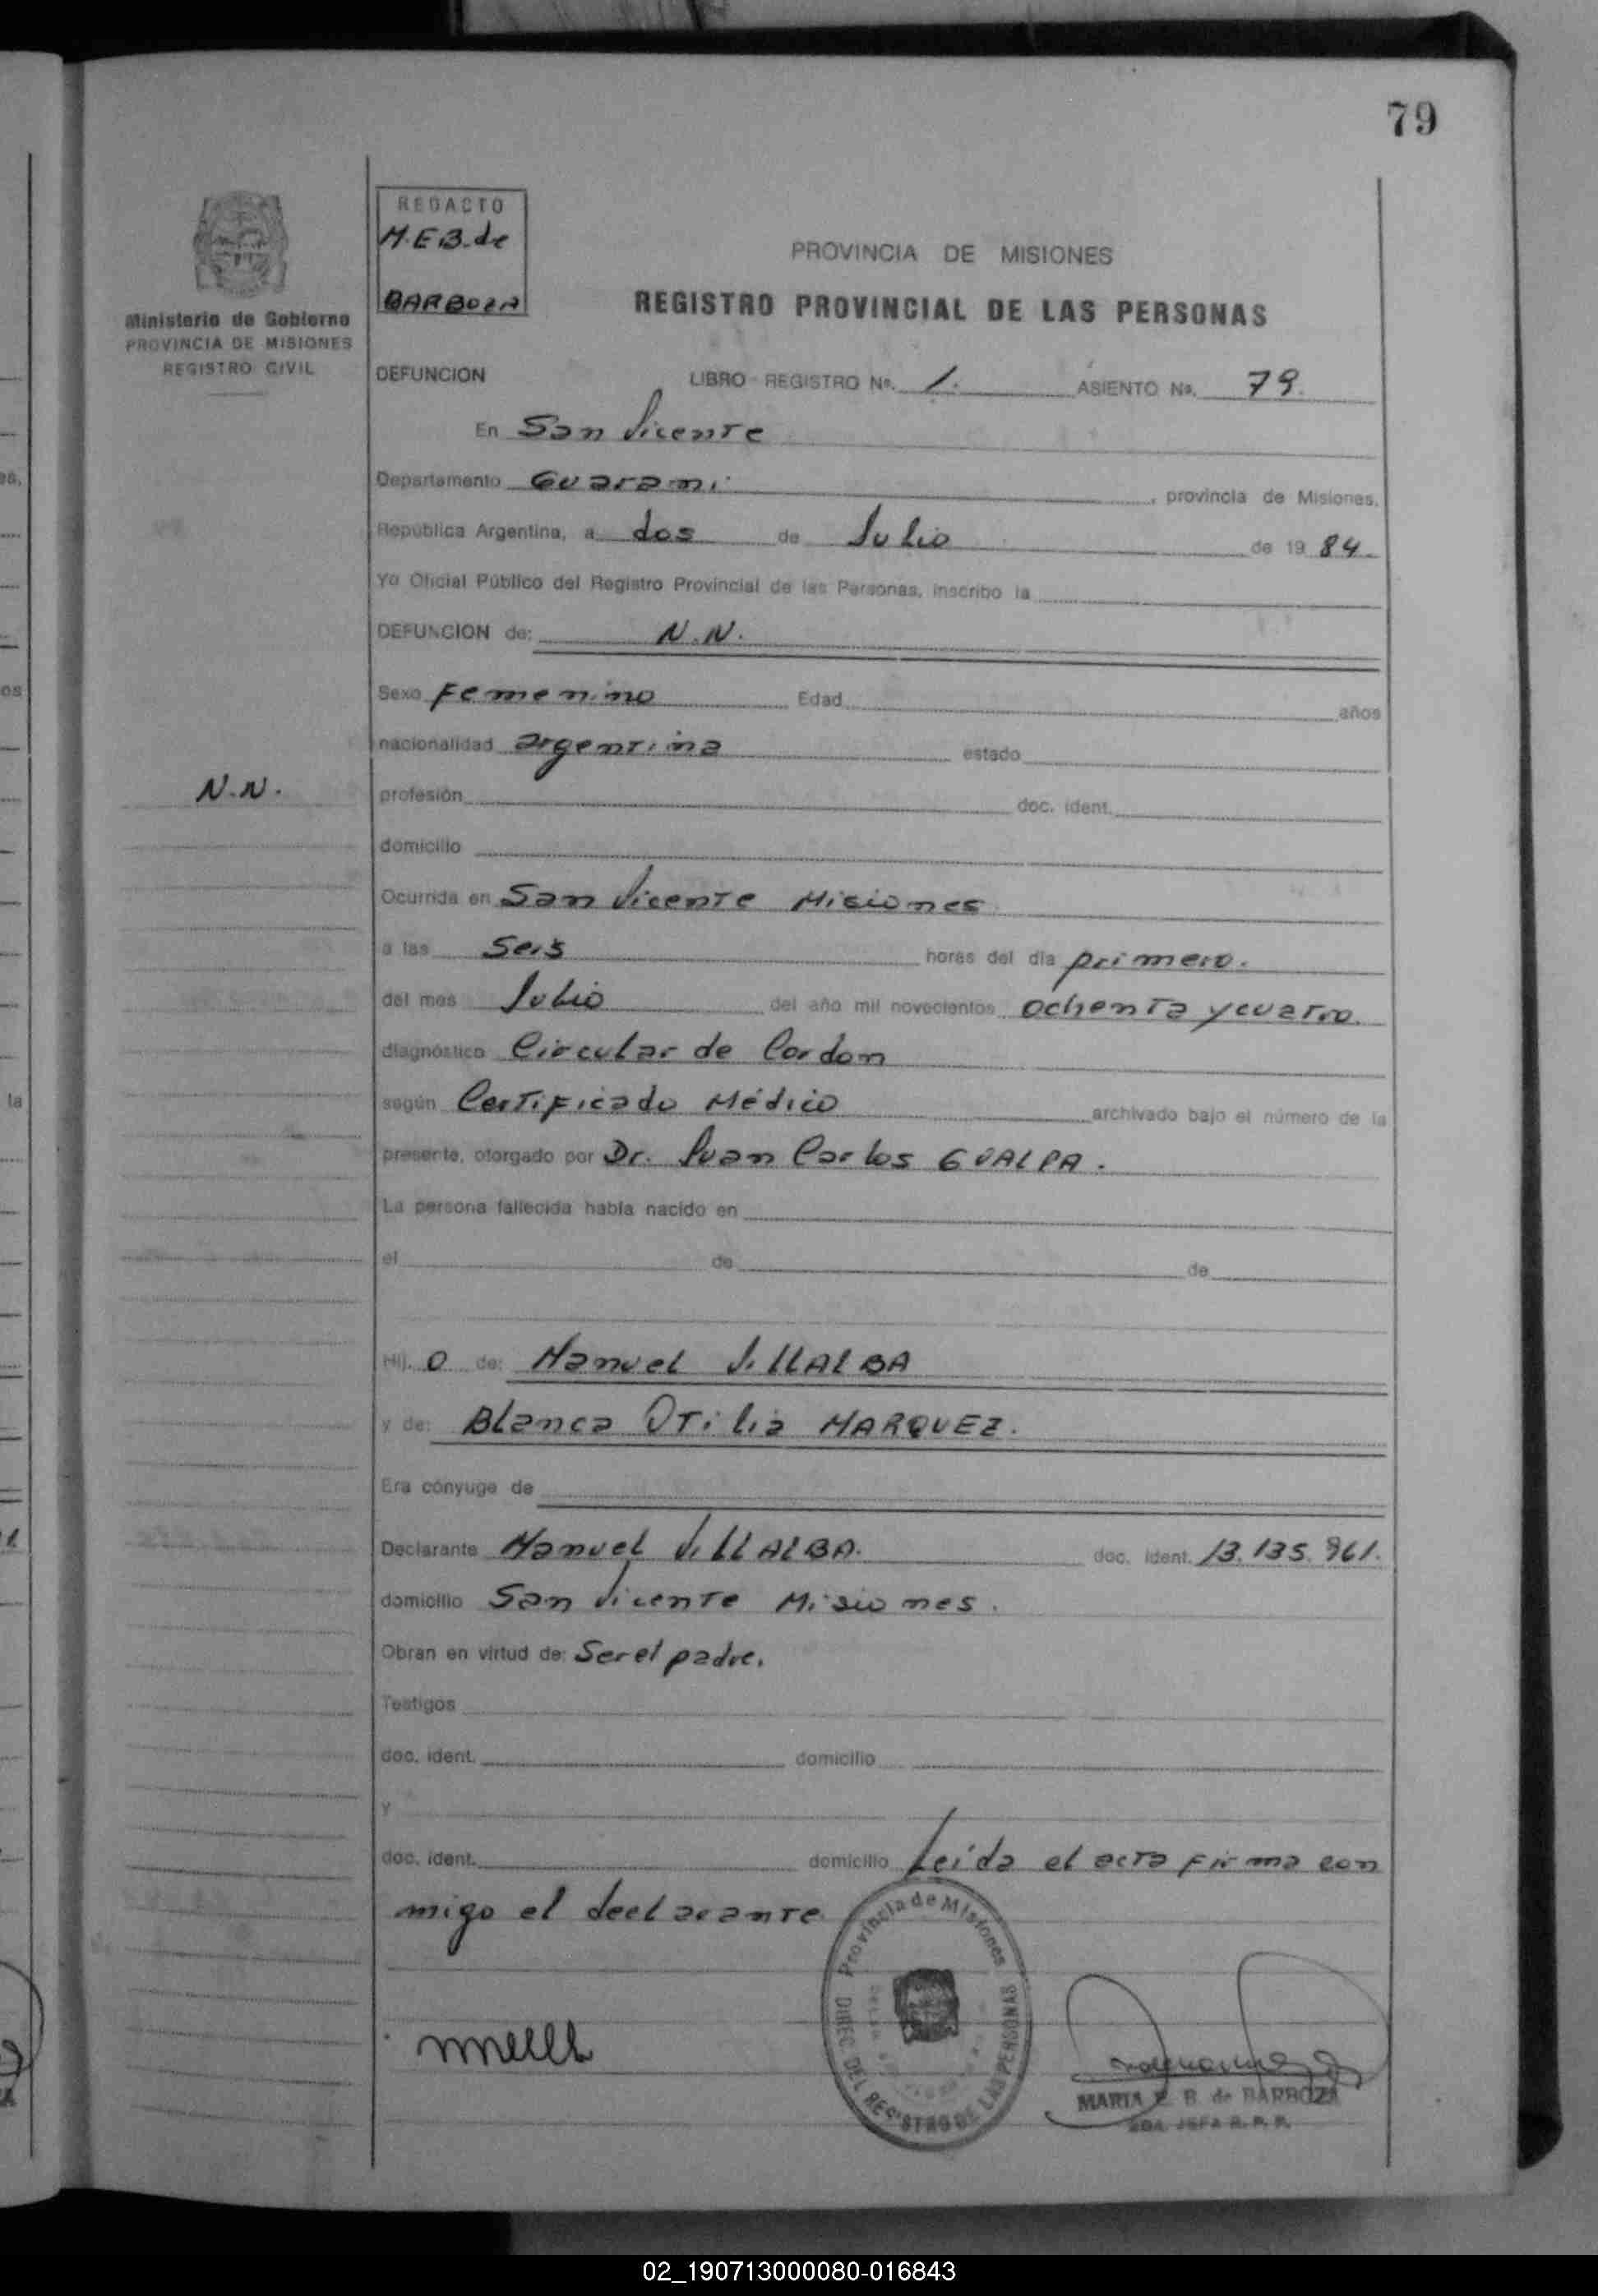 79
REDACTO
M.E.B. de
BARBOZA
Ministerio de Gobierno
PROVINCIA DE MISIONES
REGISTRO CIVIL
PROVINCIA DE MISIONES
REGISTRO PROVINCIAL DE LAS PERSONAS
DEFUNCION LIBRO REGISTRO Nº. 1. ASIENTO Nº. 79.
En San Vicente
Departamento Guarani , provincia de Misiones,
República Argentina, a dos de Julio de 19 84.
Yo Oficial Público del Registro Provincial de las Personas, inscribo la
DEFUNCION de: N.N.
Sexo Femenino Edad años
nacionalidad argentina estado
N.N.
profesión doc. ident.
domicilio
Ocurrida en San Vicente Misiones
a las Seis horas del día primero.
del mes Julio del año mil novecientos ochenta y cuatro.
diagnóstico Circular de Cordon
según Certificado Médico archivado bajo el número de la
presente, otorgado por Dr. Juan Carlos GUALPA.
La persona fallecida había nacido en
el de de
Hij. o de: Manuel VILLALBA
y de: Blanca Otilia MARQUEZ.
Era cónyuge de
Declarante Manuel VILLALBA. doc. ident. 13.135.961.
domicilio San Vicente Misiones.
Obran en virtud de: Ser el padre.
Testigos
doc. ident. domicilio
y
doc. ident. domicilio Leida el acta firma con
migo el declarante
Provincia de Misiones
DIREC. DEL REGISTRO DE LAS PERSONAS
MARIA E. B. de BARBOZA
JEFA R. P. P.
02_190713000080-016843